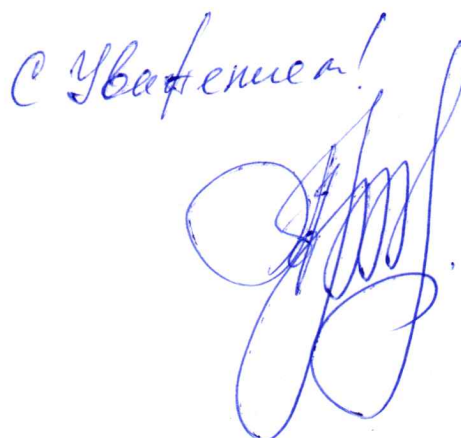 С Уважением!